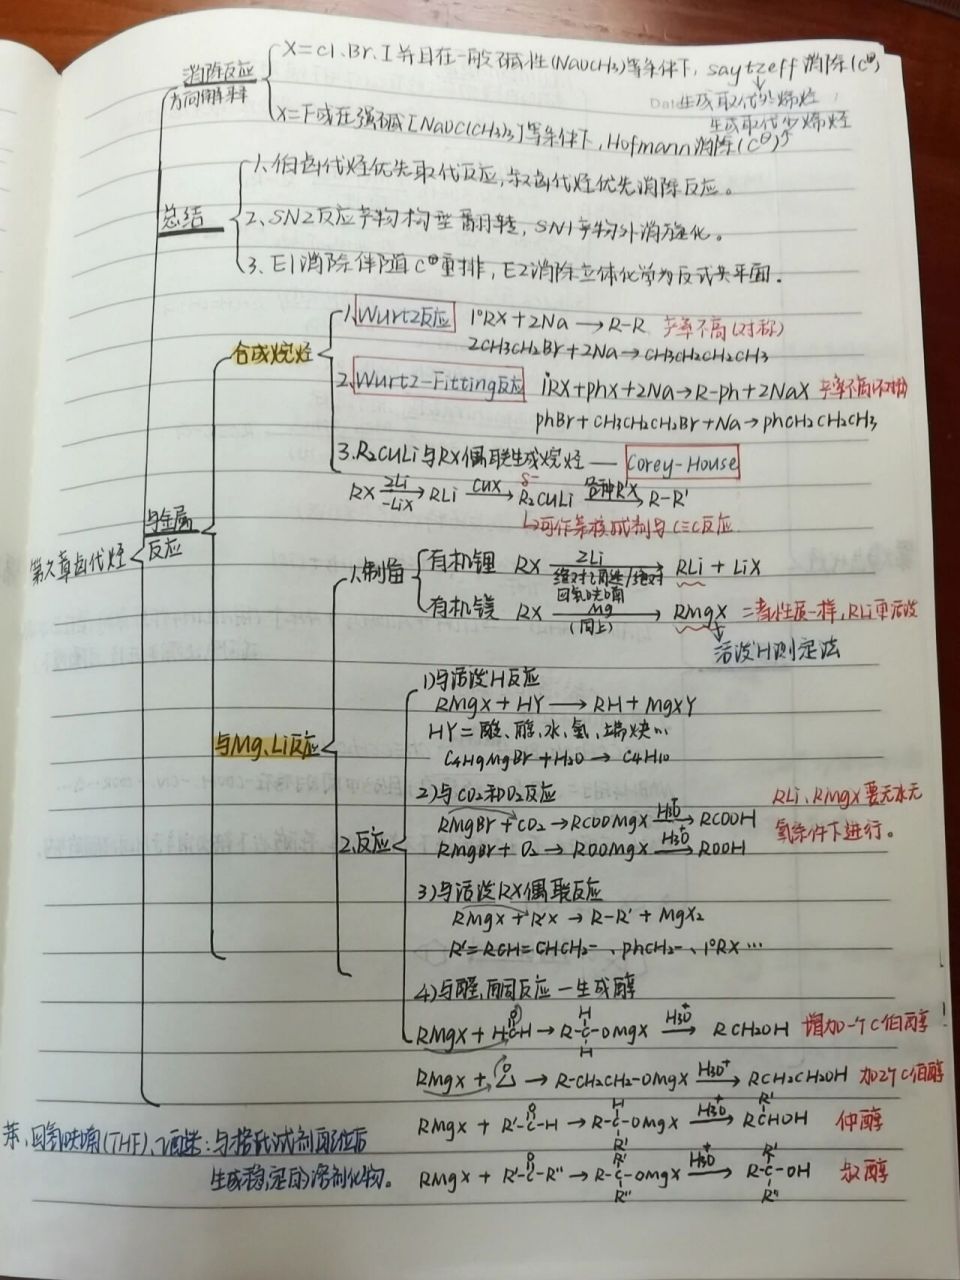 消除反应
方向解释
X=Cl、Br、I并且在一般碱性(NaOCH3)等条件下，saytzeff消除(C⊕)
生成取代多烯烃
生成取代少烯烃
X=F或在强碱[NaOC(CH3)3]等条件下，Hofmann消除(C⊖)
总结
1、伯卤代烃优先取代反应，叔卤代烃优先消除反应。
2、SN2反应产物构型翻转，SN1产物外消旋化。
3、E1消除伴随C⊕重排，E2消除立体化学为反式共平面。
第六章卤代烃
与金属
反应
合成烷烃
1、Wurtz反应 1°RX+2Na→R-R 产率不高(对称)
2CH3CH2Br+2Na→CH3CH2CH2CH3
2、Wurtz-Fitting反应 1°RX+phX+2Na→R-ph+2NaX 产率不高(不对称)
phBr+CH3CH2CH2Br+Na→phCH2CH2CH3
3.R2CuLi与RX偶联生成烷烃——Corey-House
RX 2Li/-LiX→ RLi CuX→ δ- R2CuLi 各种R'X→ R-R'
↳可作亲核试剂与C≡C反应
与Mg、Li反应
1、制备
有机锂 RX 2Li/绝对乙醚/绝对四氢呋喃→ RLi + LiX
有机镁 RX Mg/(同上)→ RMgX 二者性质一样，RLi更活泼
活泼H测定法
2、反应
1)与活泼H反应
RMgX + HY→RH+MgXY
HY=酸、醇、水、氨、端炔…
C4H9MgBr+H2O→C4H10
2)与CO2和O2反应
RMgBr+CO2→RCOOMgX H3O+→RCOOH
RMgBr+O2→ROOMgX H3O+→ROOH
RLi、RMgX要无水无
氧条件下进行。
3)与活泼RX偶联反应
RMgX+R'X→R-R'+MgX2
R'=RCH=CHCH2-、phCH2-、1°RX…
4)与醛、酮反应—生成醇
RMgX + H-C(=O)-H→R-C(H)(H)-OMgX H3O+→RCH2OH 增加一个C伯醇
RMgX + △O→R-CH2CH2-OMgX H3O+→RCH2CH2OH 加2个C伯醇
RMgX + R'-C(=O)-H→R-C(H)(R')-OMgX H3O+→RCHOH R' 仲醇
RMgX + R'-C(=O)-R"→R-C(R')(R")-OMgX H3O+→R-C(R')(R")-OH 叔醇
苯、四氢呋喃(THF)、乙醚：与格氏试剂配位后
生成稳定的溶剂化物。